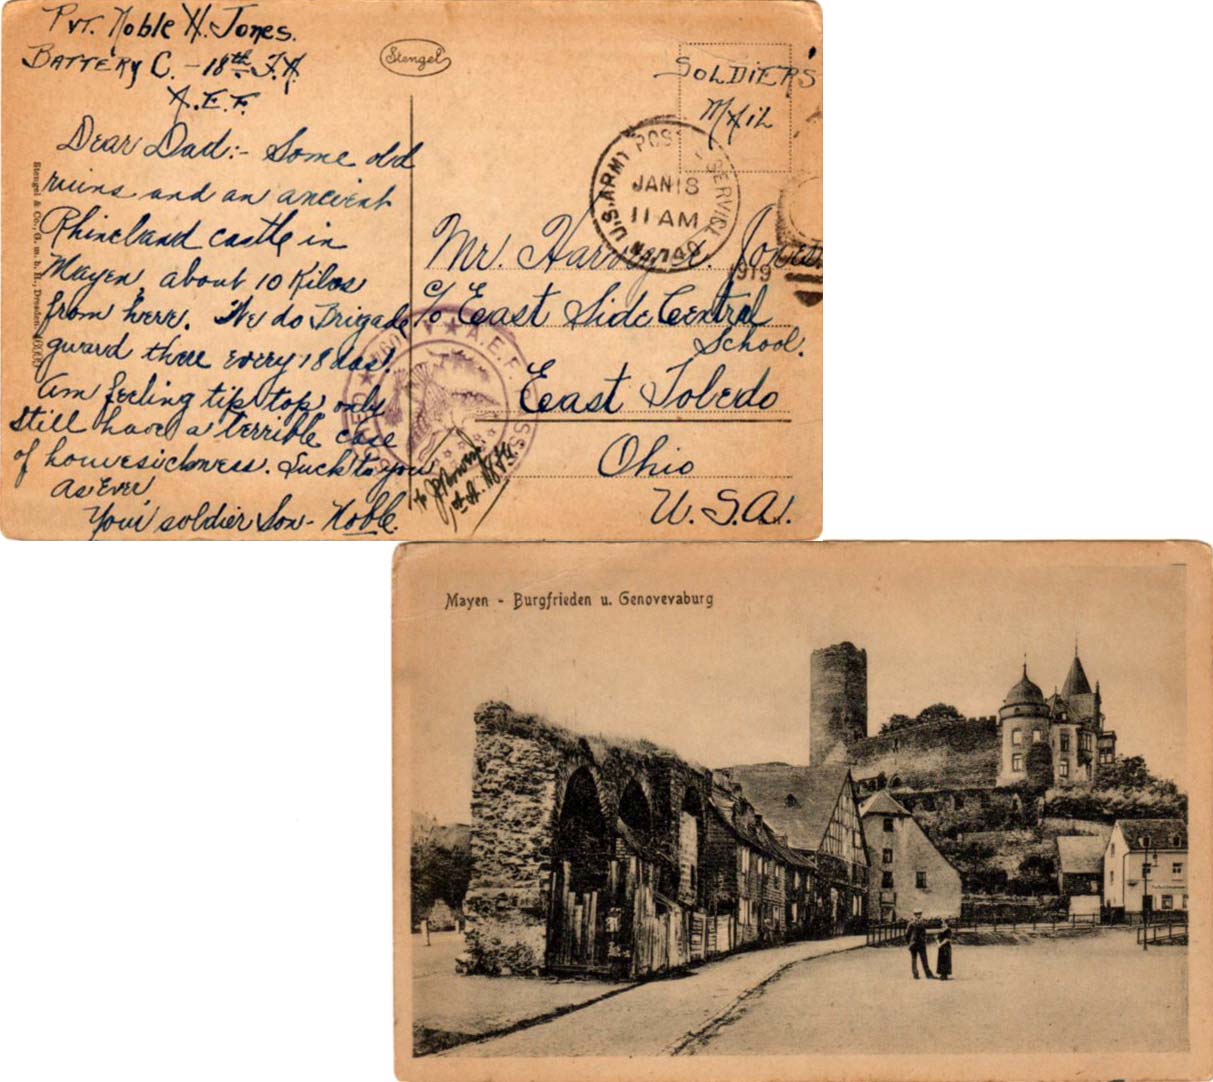 Pvt. Noble H. Jones.
Battery C. - 18th F.A.
A.E.F.
Dear Dad:- Some old
ruins and an ancient
Rhineland castle in
Mayen, about 10 Kilos
from here. We do Brigade
guard there every 18 das.
Am feeling tip top, only
still have a terrible case
of homesickness. Luck to you
as Ever,
Your soldier Son - Noble.
Stengel & Co., G. m. b. H., Dresden
Stengel
Soldiers
Mail
U.S. ARMY POST SERVICE
JAN 18
11 AM
1919
Mr. Harvey Jones
c/o East Side Central
School.
East Toledo
Ohio
U.S.A.
A.E.F.
Mayen - Burgfrieden u. Genovevaburg